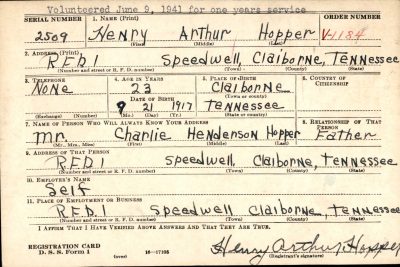 Volunteered June 9, 1941 for one years service
SERIAL NUMBER 1. NAME (Print) ORDER NUMBER
2509 Henry Arthur Hopper V-1184
(First) (Middle) (Last)
2. ADDRESS (Print)
R.F.D.1 Speedwell, Claiborne, Tennessee
(Number and street or R. F. D. number) (Town) (County) (State)
3. TELEPHONE 4. AGE IN YEARS 5. PLACE OF BIRTH 6. COUNTRY OF CITIZENSHIP
None 23 Claiborne
DATE OF BIRTH (Town or county)
9 21 1917 Tennessee
(Exchange) (Number) (Mo.) (Day) (Yr.) (State or country)
7. NAME OF PERSON WHO WILL ALWAYS KNOW YOUR ADDRESS 8. RELATIONSHIP OF THAT PERSON
Mr. Charlie Henderson Hopper Father
(Mr., Mrs., Miss) (First) (Middle) (Last)
9. ADDRESS OF THAT PERSON
R.F.D.1 Speedwell, Claiborne, Tennessee
(Number and street or R. F. D. number) (Town) (County) (State)
10. EMPLOYER'S NAME
Self
11. PLACE OF EMPLOYMENT OR BUSINESS
R.F.D.1 Speedwell Claiborne, Tennessee
(Number and street or R. F. D. number) (Town) (County) (State)
I AFFIRM THAT I HAVE VERIFIED ABOVE ANSWERS AND THAT THEY ARE TRUE.
REGISTRATION CARD
D. S. S. Form 1 (over) 16—17105 Henry Arthur Hopper
(Registrant's signature)